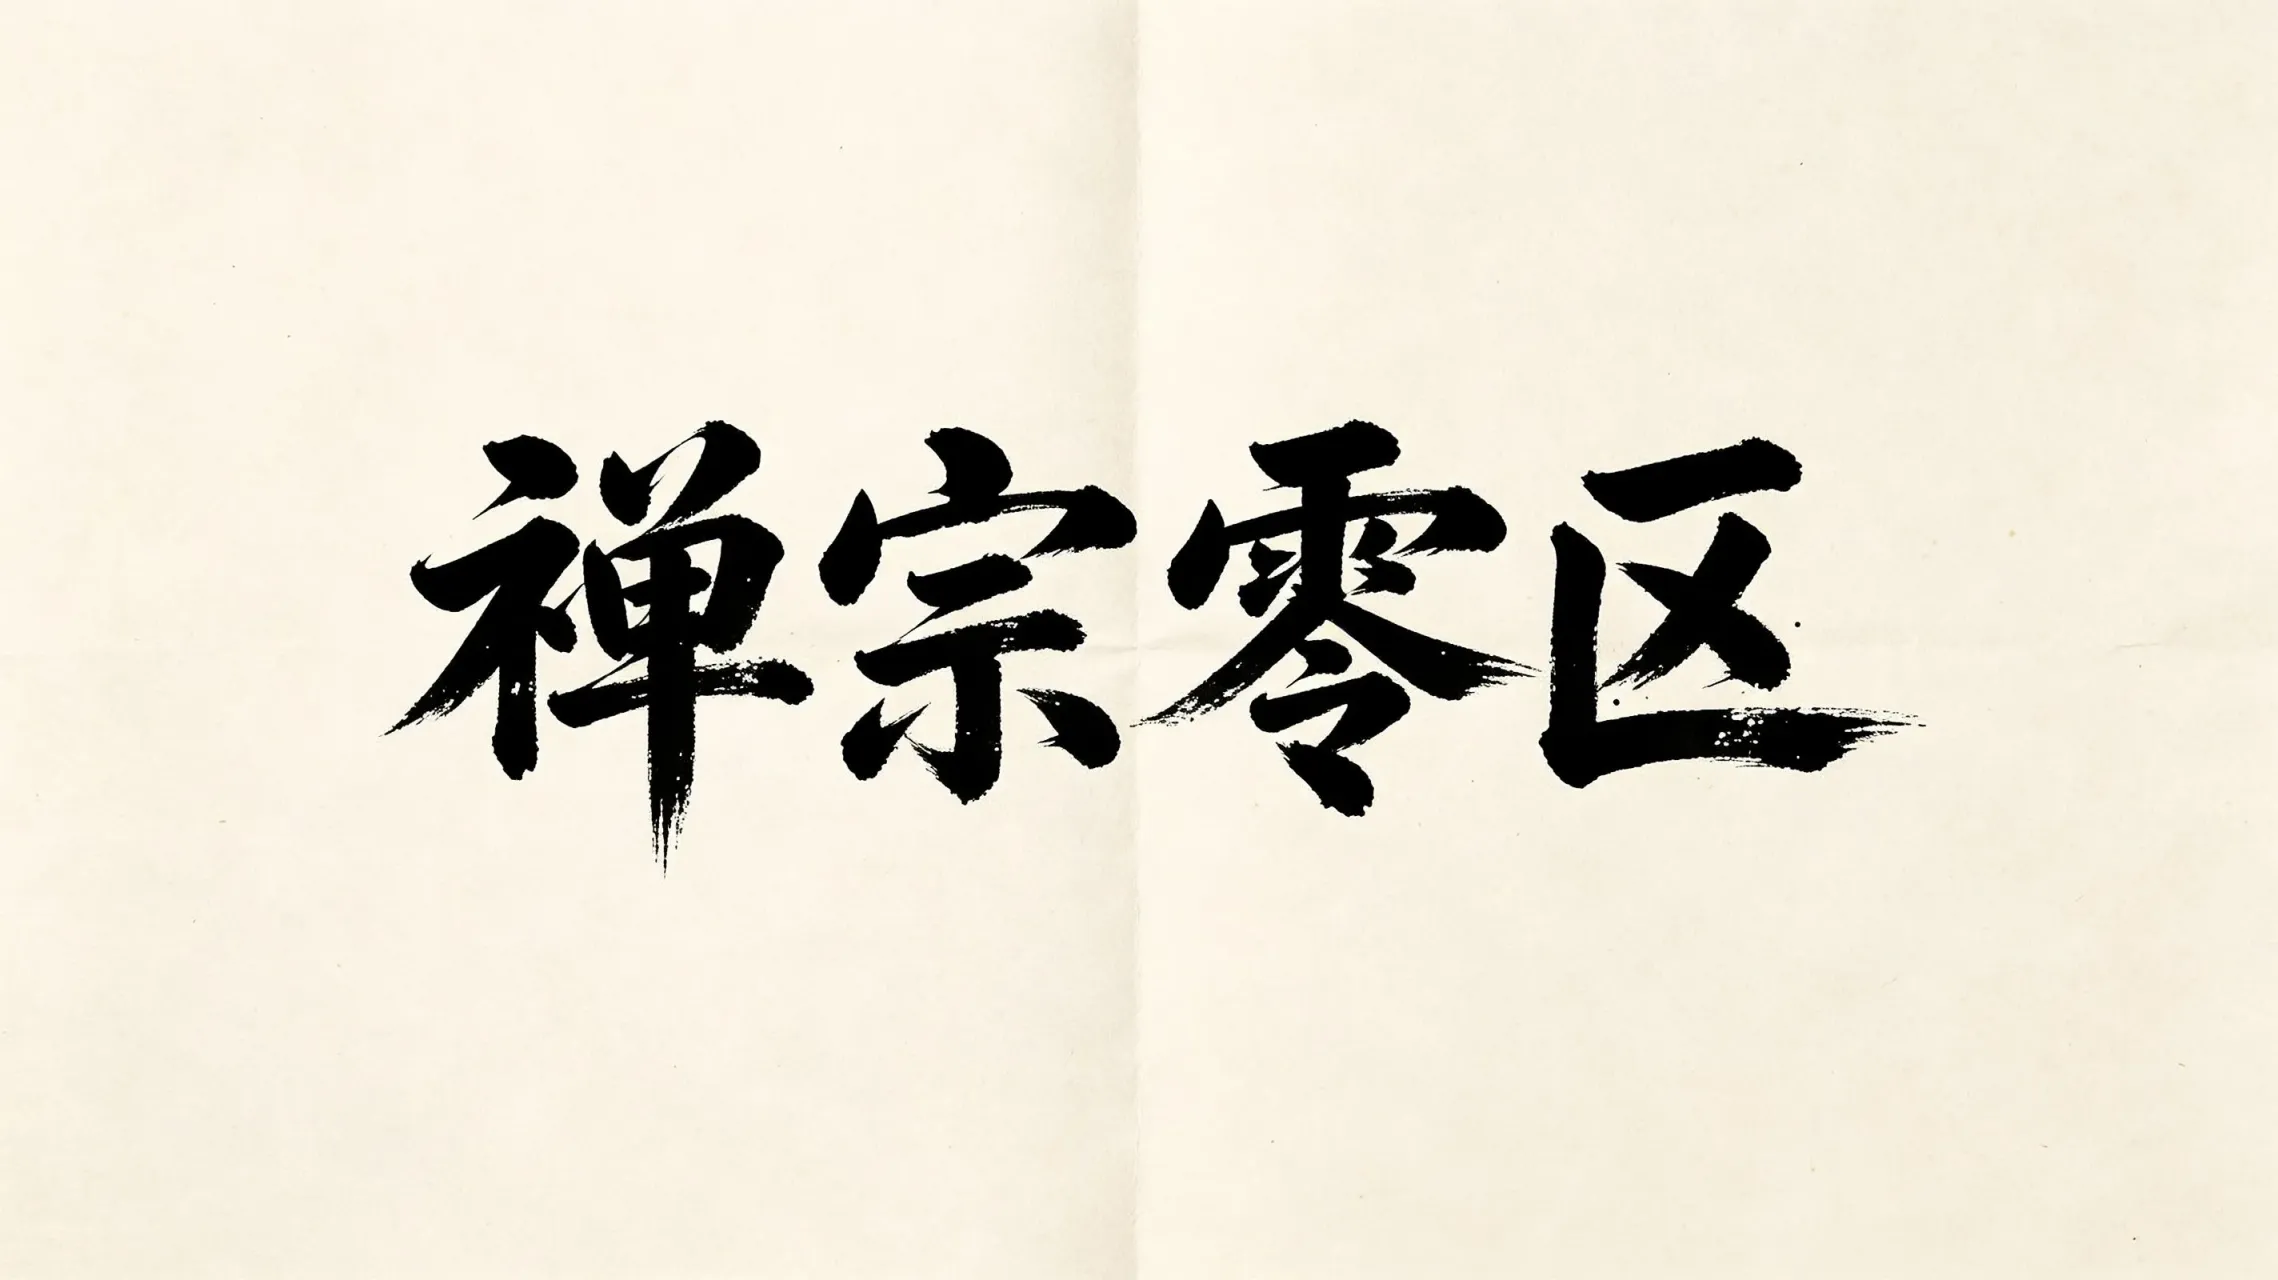 禅宗零区